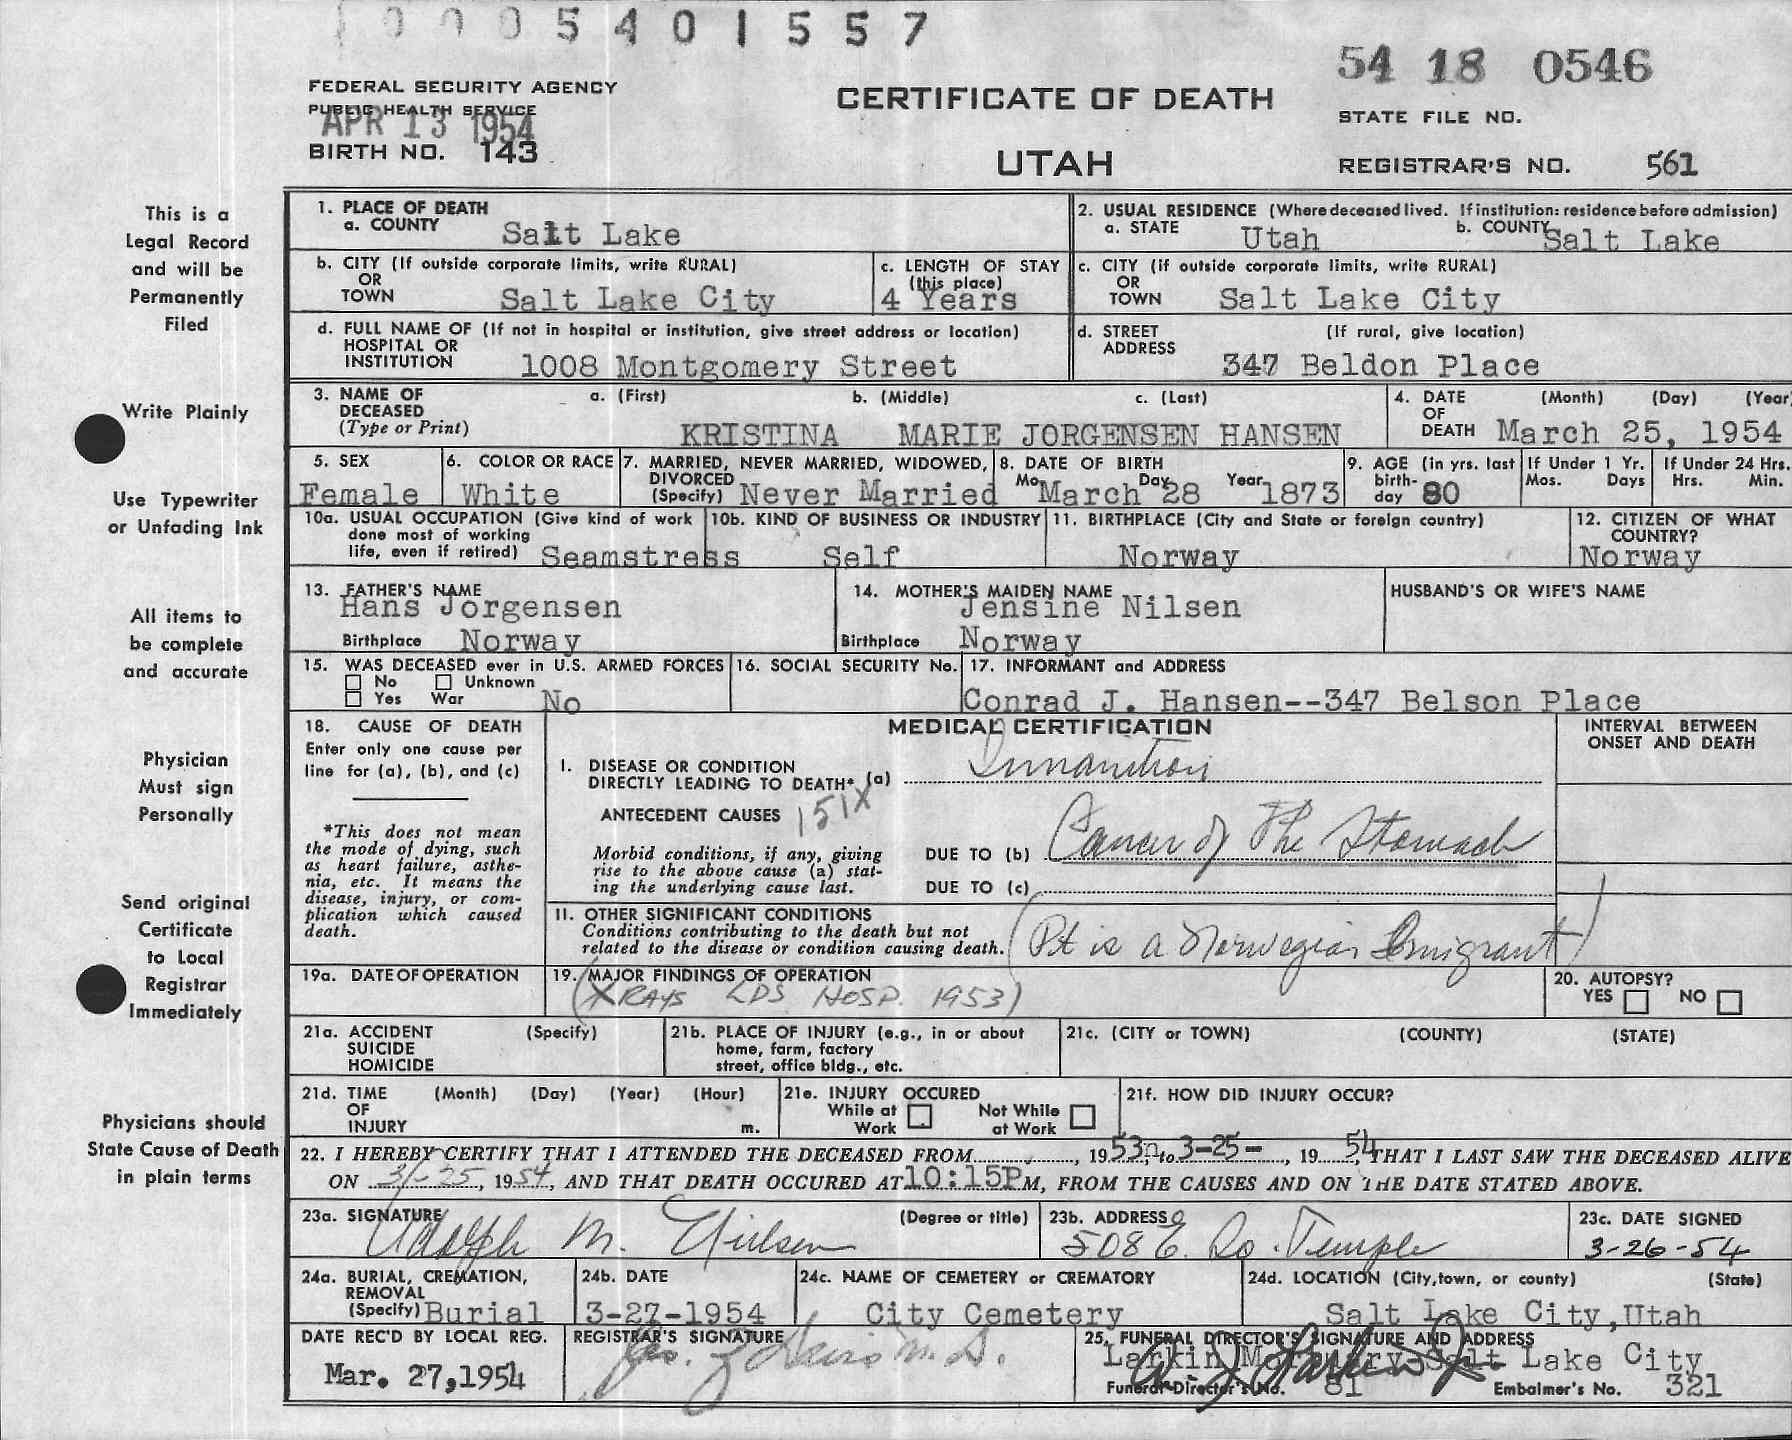 0 0 0 5 4 0 1 5 5 7
54 18 0546
FEDERAL SECURITY AGENCY
PUBLIC HEALTH SERVICE
APR 13 1954
BIRTH NO. 143
CERTIFICATE OF DEATH
UTAH
STATE FILE NO.
REGISTRAR'S NO. 561
This is a
Legal Record
and will be
Permanently
Filed
Write Plainly
Use Typewriter
or Unfading Ink
All items to
be complete
and accurate
Physician
Must sign
Personally
Send original
Certificate
to Local
Registrar
Immediately
Physicians should
State Cause of Death
in plain terms
1. PLACE OF DEATH
a. COUNTY Salt Lake
2. USUAL RESIDENCE (Where deceased lived. If institution: residence before admission)
a. STATE Utah b. COUNTY Salt Lake
b. CITY (If outside corporate limits, write RURAL)
OR
TOWN Salt Lake City
c. LENGTH OF STAY
(this place)
4 Years
c. CITY (if outside corporate limits, write RURAL)
OR
TOWN Salt Lake City
d. FULL NAME OF (If not in hospital or institution, give street address or location)
HOSPITAL OR
INSTITUTION 1008 Montgomery Street
d. STREET (If rural, give location)
ADDRESS 347 Beldon Place
3. NAME OF a. (First) b. (Middle) c. (Last)
DECEASED
(Type or Print) KRISTINA MARIE JORGENSEN HANSEN
4. DATE (Month) (Day) (Year)
OF
DEATH March 25, 1954
5. SEX
Female
6. COLOR OR RACE
White
7. MARRIED, NEVER MARRIED, WIDOWED,
DIVORCED
(Specify) Never Married
8. DATE OF BIRTH
Mo. March Day 28 Year 1873
9. AGE (in yrs. last
birth-
day 80
If Under 1 Yr.
Mos. Days
If Under 24 Hrs.
Hrs. Min.
10a. USUAL OCCUPATION (Give kind of work
done most of working
life, even if retired) Seamstress
10b. KIND OF BUSINESS OR INDUSTRY
Self
11. BIRTHPLACE (City and State or foreign country)
Norway
12. CITIZEN OF WHAT
COUNTRY?
Norway
13. FATHER'S NAME
Hans Jorgensen
Birthplace Norway
14. MOTHER'S MAIDEN NAME
Jensine Nilsen
Birthplace Norway
HUSBAND'S OR WIFE'S NAME
15. WAS DECEASED ever in U.S. ARMED FORCES
No Unknown
Yes War No
16. SOCIAL SECURITY No.
17. INFORMANT and ADDRESS
Conrad J. Hansen--347 Belson Place
18. CAUSE OF DEATH
Enter only one cause per
line for (a), (b), and (c)
*This does not mean
the mode of dying, such
as heart failure, asthe-
nia, etc. It means the
disease, injury, or com-
plication which caused
death.
MEDICAL CERTIFICATION
INTERVAL BETWEEN
ONSET AND DEATH
I. DISEASE OR CONDITION
DIRECTLY LEADING TO DEATH* (a) Innanition
ANTECEDENT CAUSES 151X
Morbid conditions, if any, giving
rise to the above cause (a) stat-
ing the underlying cause last.
DUE TO (b) Cancer of The Stomach
DUE TO (c)
II. OTHER SIGNIFICANT CONDITIONS
Conditions contributing to the death but not
related to the disease or condition causing death.
(Pt is a Norwegian Emigrant)
19a. DATE OF OPERATION
19. MAJOR FINDINGS OF OPERATION
(X RAYS LDS HOSP. 1953)
20. AUTOPSY?
YES NO
21a. ACCIDENT (Specify)
SUICIDE
HOMICIDE
21b. PLACE OF INJURY (e.g., in or about
home, farm, factory
street, office bldg., etc.
21c. (CITY or TOWN) (COUNTY) (STATE)
21d. TIME (Month) (Day) (Year) (Hour)
OF
INJURY m.
21e. INJURY OCCURED
While at Work Not While at Work
21f. HOW DID INJURY OCCUR?
22. I HEREBY CERTIFY THAT I ATTENDED THE DECEASED FROM , 1953, to 3-25- , 19 54, THAT I LAST SAW THE DECEASED ALIVE
ON 3/-25, 1954, AND THAT DEATH OCCURED AT 10:15P M, FROM THE CAUSES AND ON THE DATE STATED ABOVE.
23a. SIGNATURE (Degree or title)
Adolph M. Nielsen
23b. ADDRESS
508 E. So. Temple
23c. DATE SIGNED
3-26-54
24a. BURIAL, CREMATION,
REMOVAL
(Specify) Burial
24b. DATE
3-27-1954
24c. NAME OF CEMETERY or CREMATORY
City Cemetery
24d. LOCATION (City, town, or county) (State)
Salt Lake City, Utah
DATE REC'D BY LOCAL REG.
Mar. 27, 1954
REGISTRAR'S SIGNATURE
M.D.
25. FUNERAL DIRECTOR'S SIGNATURE AND ADDRESS
Larkin Mortuary-Salt Lake City
Funeral Director's No. 81 Embalmer's No. 321